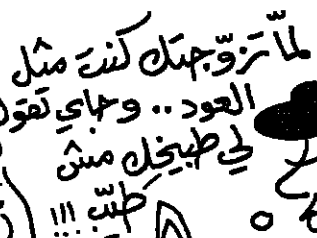 لمّا تزوّجتك كنت مثل
العود .. وجاي تقول
لي طبيخك مش
طيّب !!!